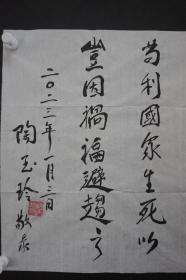 苟利國家生死以
豈因禍福避趨之
二〇二三年一月三日
陶玉玲敬录